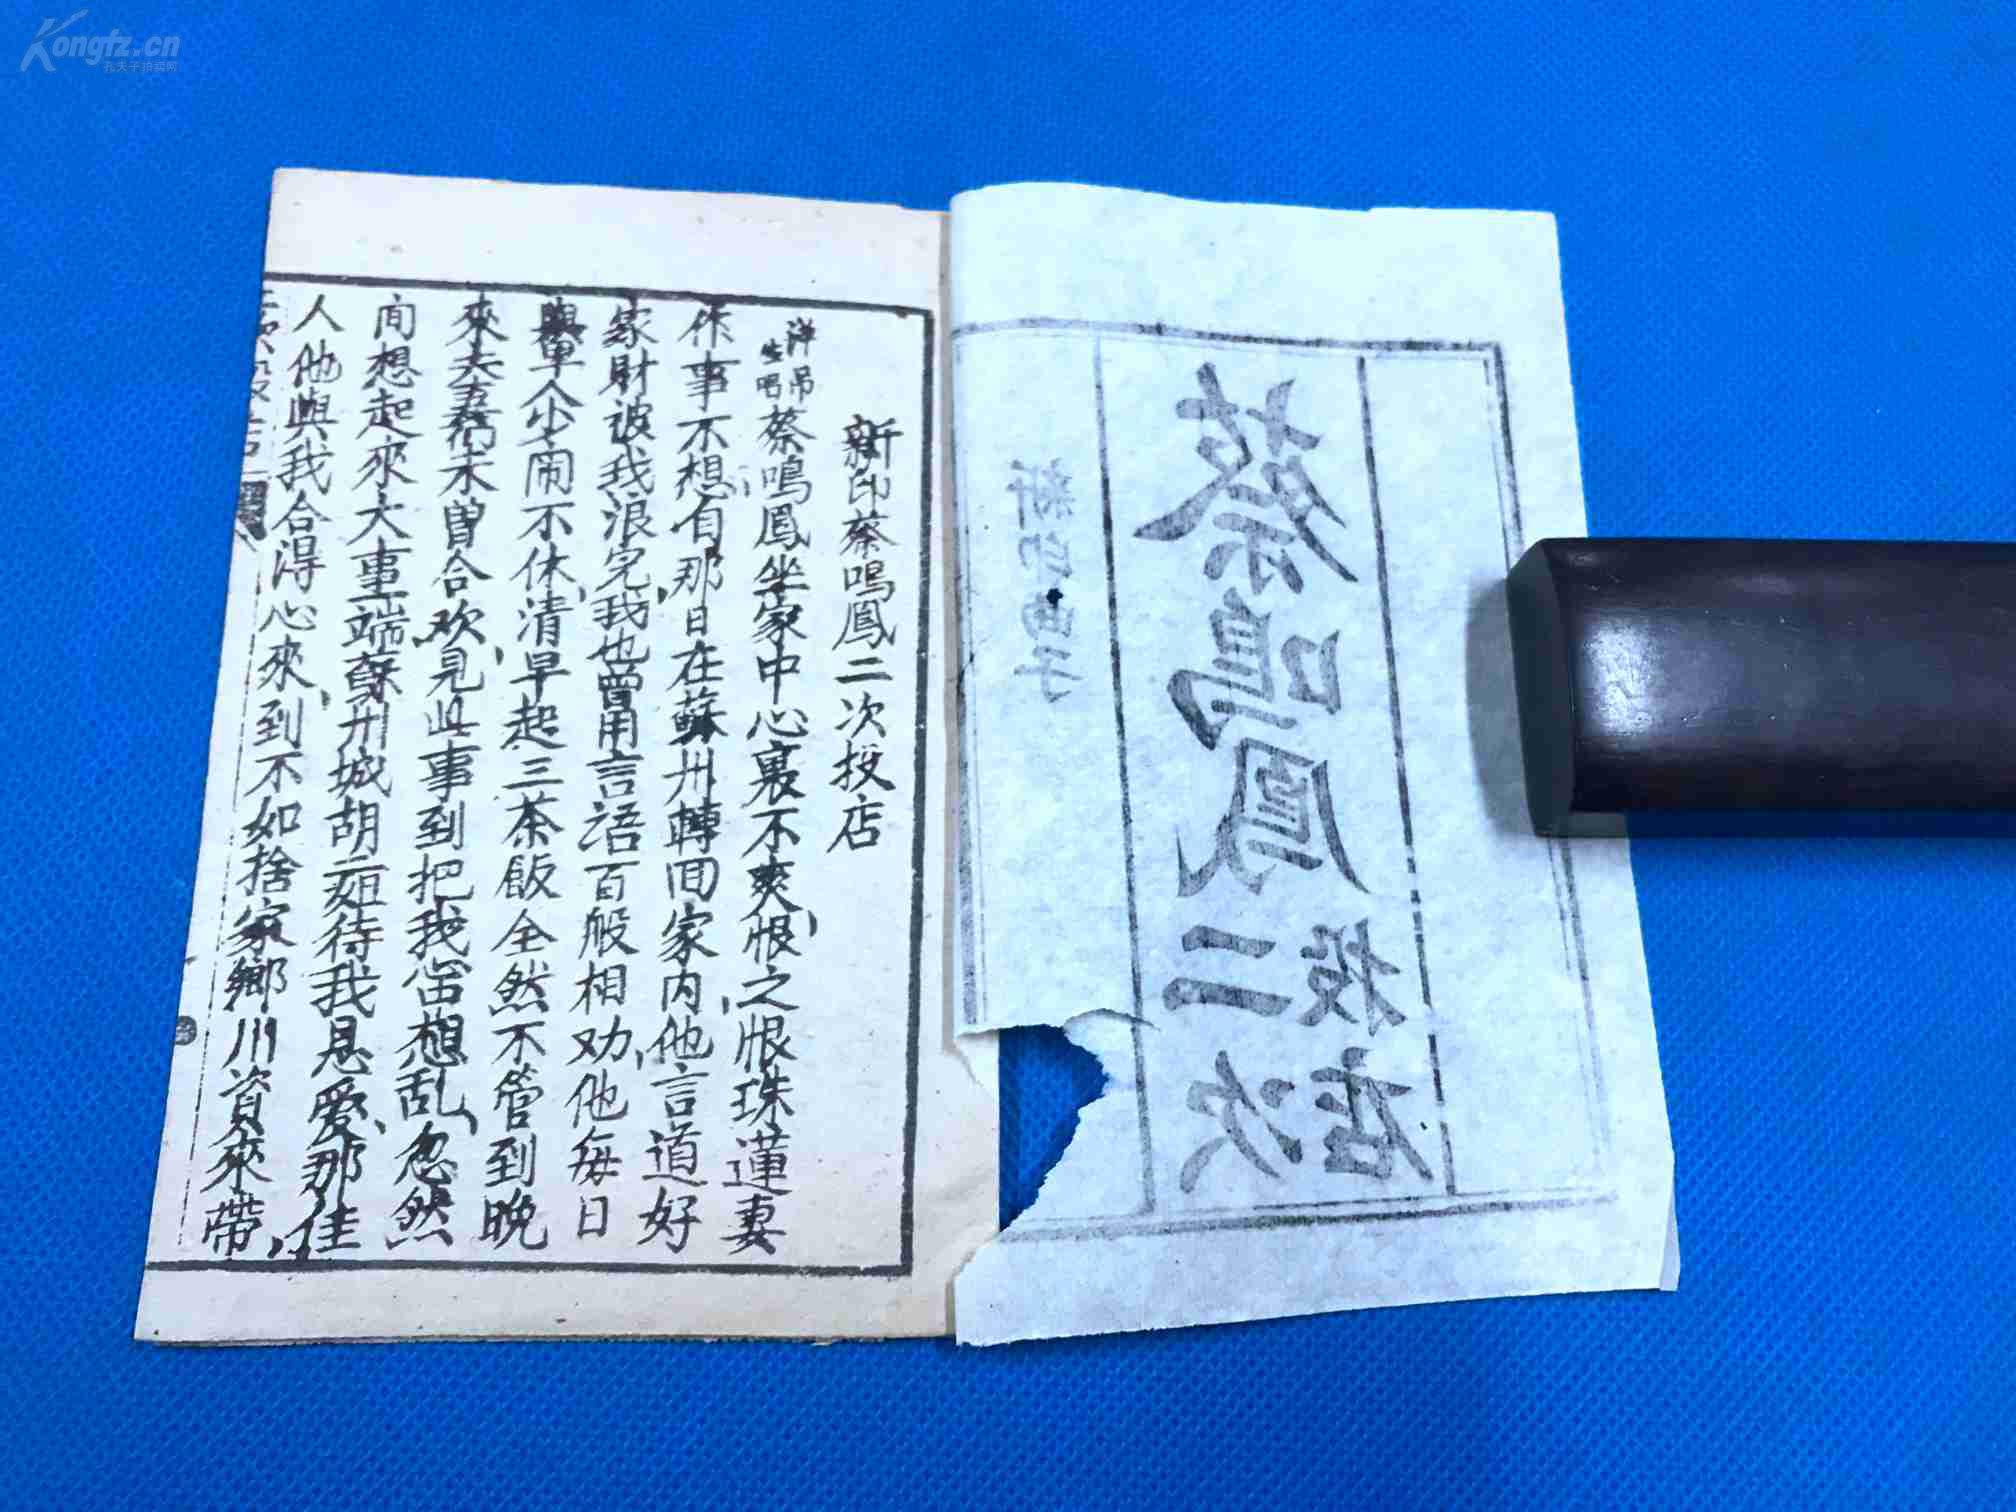 Kongfz.cn
孔夫子拍卖网
蔡鳴鳳二次投店
新印曲子
新印蔡鳴鳳二次投店
洋吊
生唱
蔡鳴鳳坐家中心裏不爽恨之恨珠蓮妻
作事不想自那日在蘇州轉回家内他言道好
家財被我浪完我也曾用言語百般相劝他每日
人少鬧不休清早起三茶飯全然不管到晚
來夫妻們未曾合欢見此事到把我心里想乱忽然
间想起來大事端蘇州城胡二姐待我恩爱那佳
人他與我合得心來到不如捨家鄉川資來帶